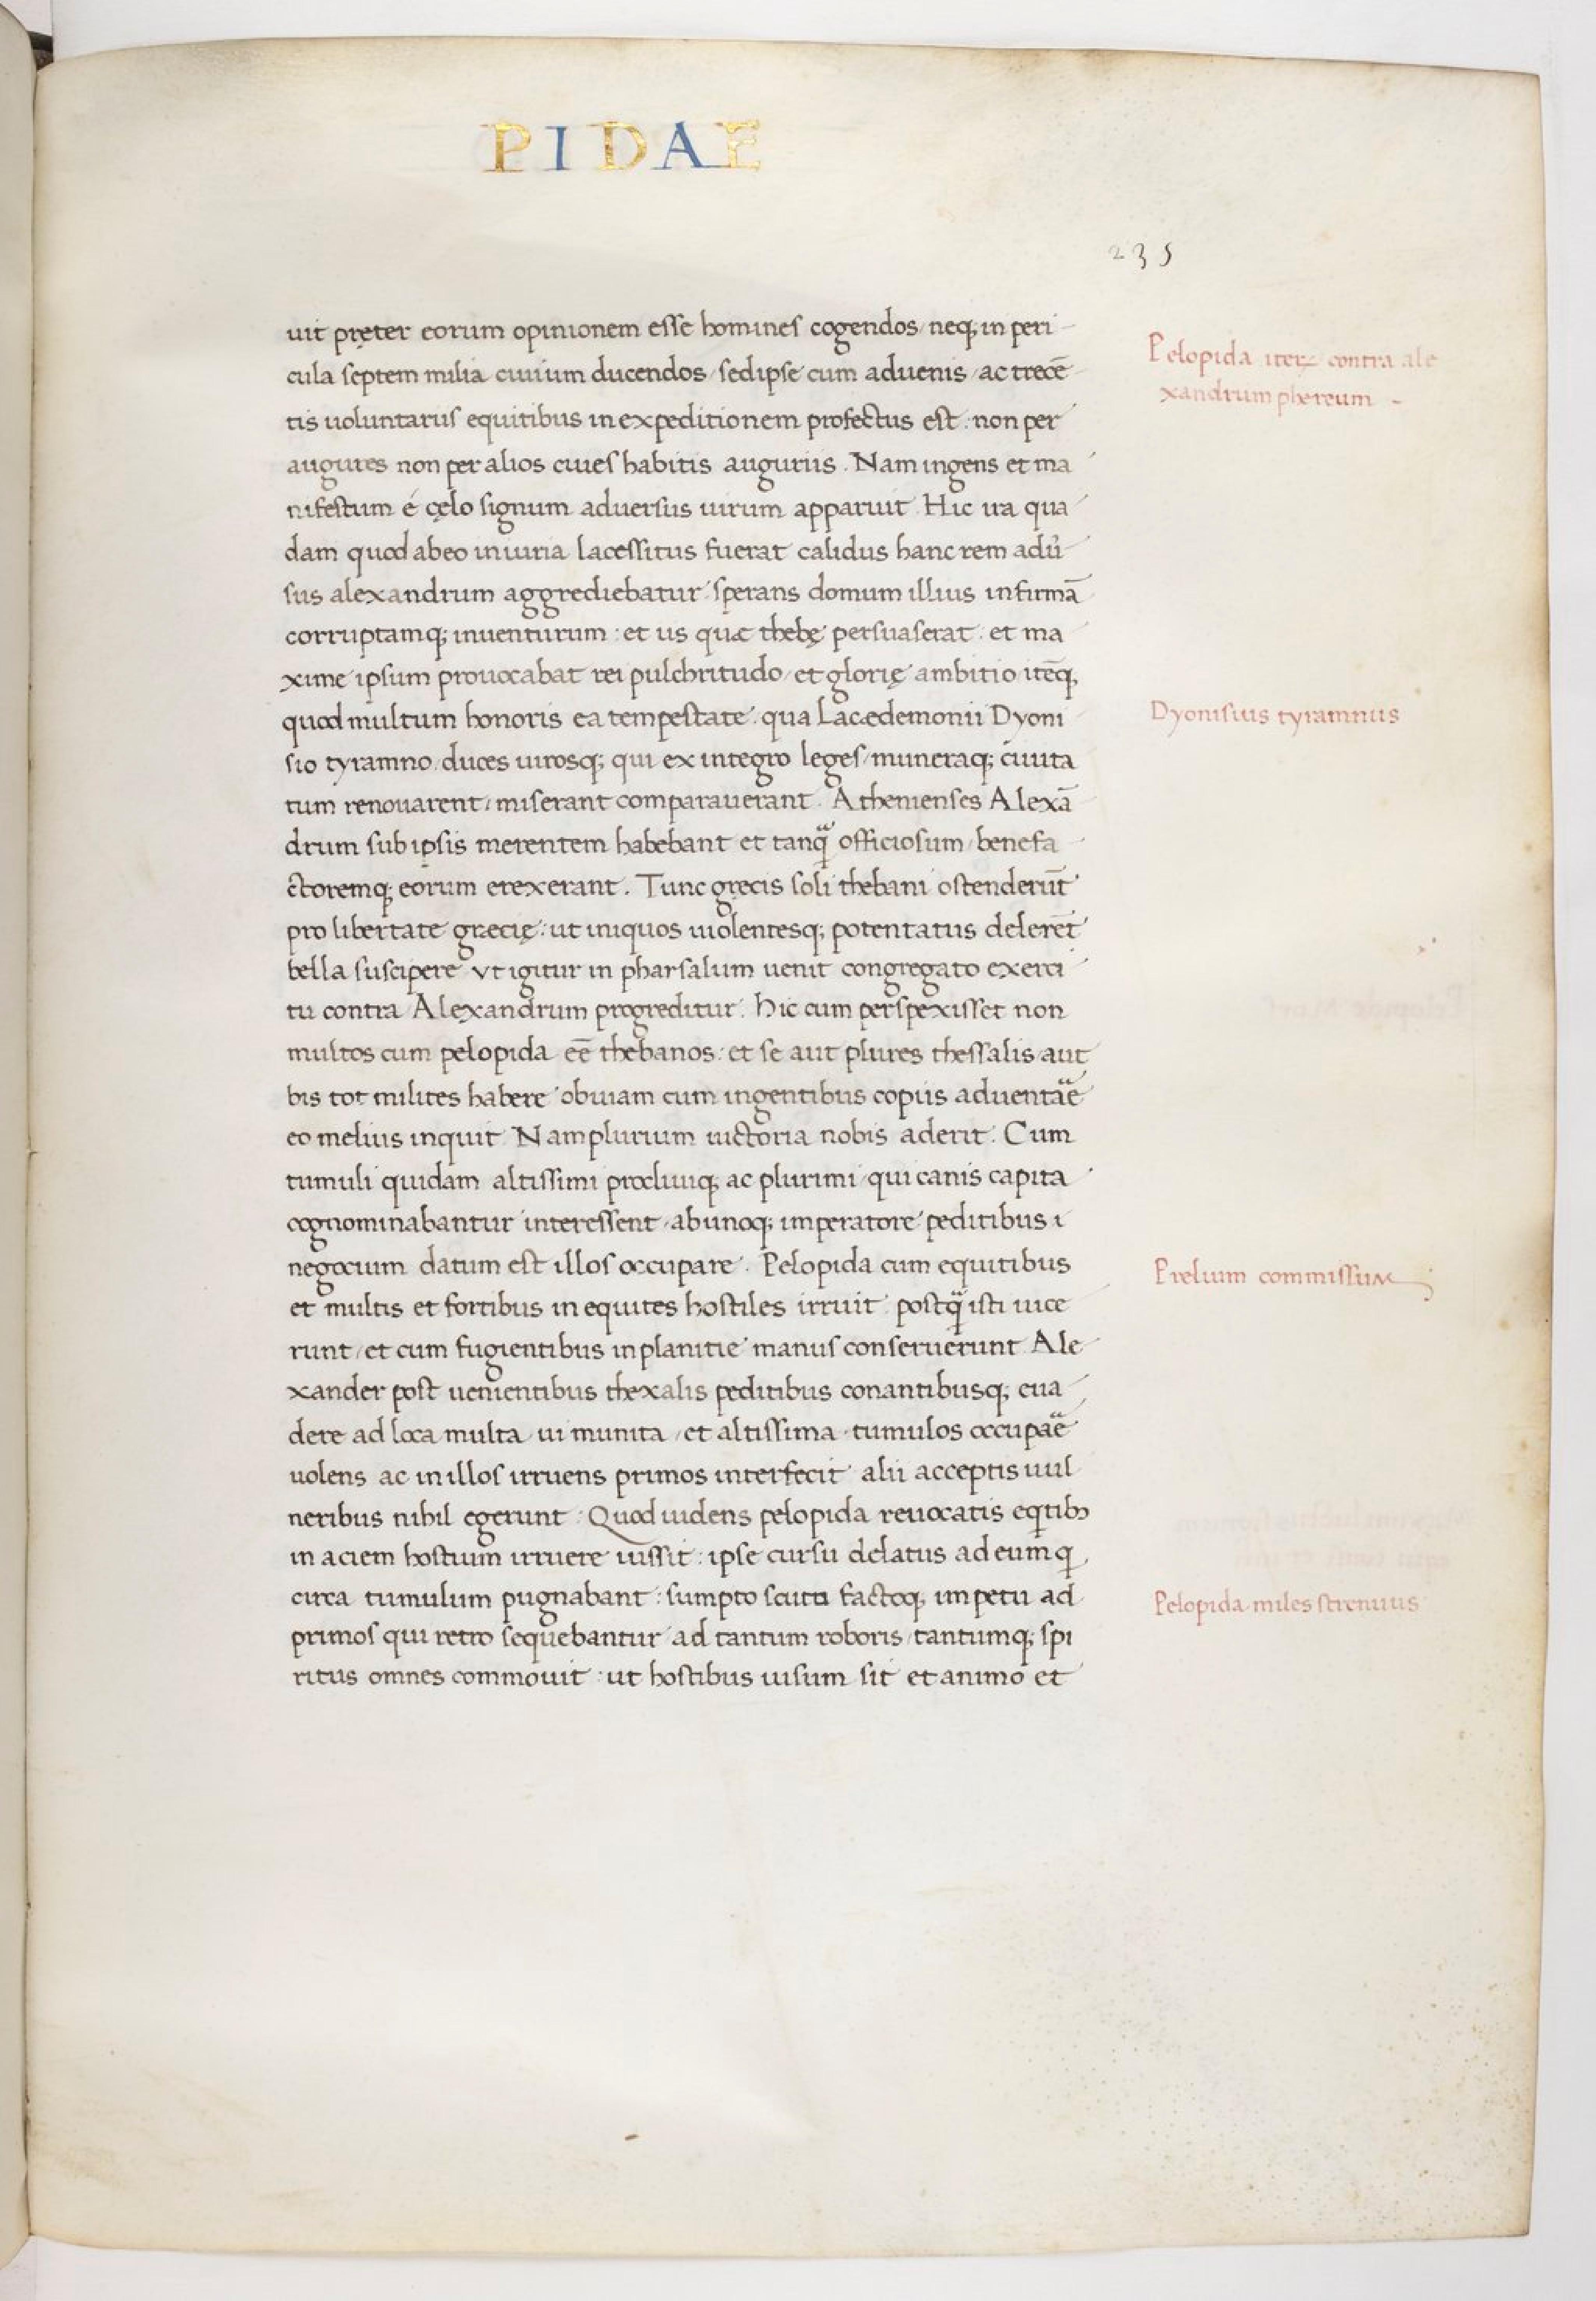 PIDAE
235
uit pręter eorum opinionem esse homines cogendos / neq; in peri-
cula septem milia ciuium ducendos / sed ipse cum aduenis / ac trecē-
tis uoluntariis equitibus in expeditionem profectus est : non per
augures non per alios ciues habitis auguriis . Nam ingens et ma
nifestum é cęlo signum aduersus uirum apparuit . Hic ira qua
dam quod ab eo iniuria lacessitus fuerat calidus hanc rem adu̓
sus alexandrum aggrediebatur / sperans domum illius infirmā
corruptamq; inuenturum : et iis quae thebę persuaserat : et ma
xime ipsum prouocabat rei pulchritudo / et glorię ambitio / itēq;
quod multum honoris ea tempestate / qua Lacaedemonii Dyoni
sio tyramno / duces uirosq; qui ex integro leges / muneraq; ciuita
tum renouarent / miserant comparauerant . Athenienses Alexā
drum sub ipsis merentem habebant et tanq̃ officiosum / benefa
ctoremq; eorum erexerant . Tunc gręcis soli thebani ostenderūt
pro libertate gręcię : ut iniquos uiolentesq; potentatus delerēt
bella suscipere vt igitur in pharsalum uenit congregato exerci
tu contra Alexandrum progreditur . hic cum perspexisset non
multos cum pelopida eē thebanos : et se aut plures thessalis / aut
bis tot milites habere / obuiam cum ingentibus copiis aduentāe
eo melius inquit . Nam plurium uictoria nobis aderit . Cum
tumuli quidam altissimi procliuiq; ac plurimi / qui canis capita
cognominabantur interessent / ab unoq; imperatore peditibus i
negocium datum est illos occupare . Pelopida cum equitibus
et multis et fortibus in equites hostiles irruit postq̃ isti uice
runt / et cum fugientibus in planitie manus conseruerunt Ale
xander post uenientibus thexalis peditibus conantibusq; eua
dere ad loca multa ui munita / et altissima tumulos occupāe
uolens ac in illos irruens primos interfecit alii acceptis uul
neribus nihil egerunt . Quod uidens pelopida reuocatis eqtibꝫ
in aciem hostium irruere iussit : ipse cursu delatus ad eum q
circa tumulum pugnabant : sumpto scuto factoq; impetu ad
primos qui retro sequebantur ad tantum roboris / tantumq; spi
ritus omnes commouit : ut hostibus uisum sit et animo et
Pelopida iteꝝ contra ale
xandrum phereum -
Dyonisius tyramnus
Prelium commissum
Pelopida miles strenuus